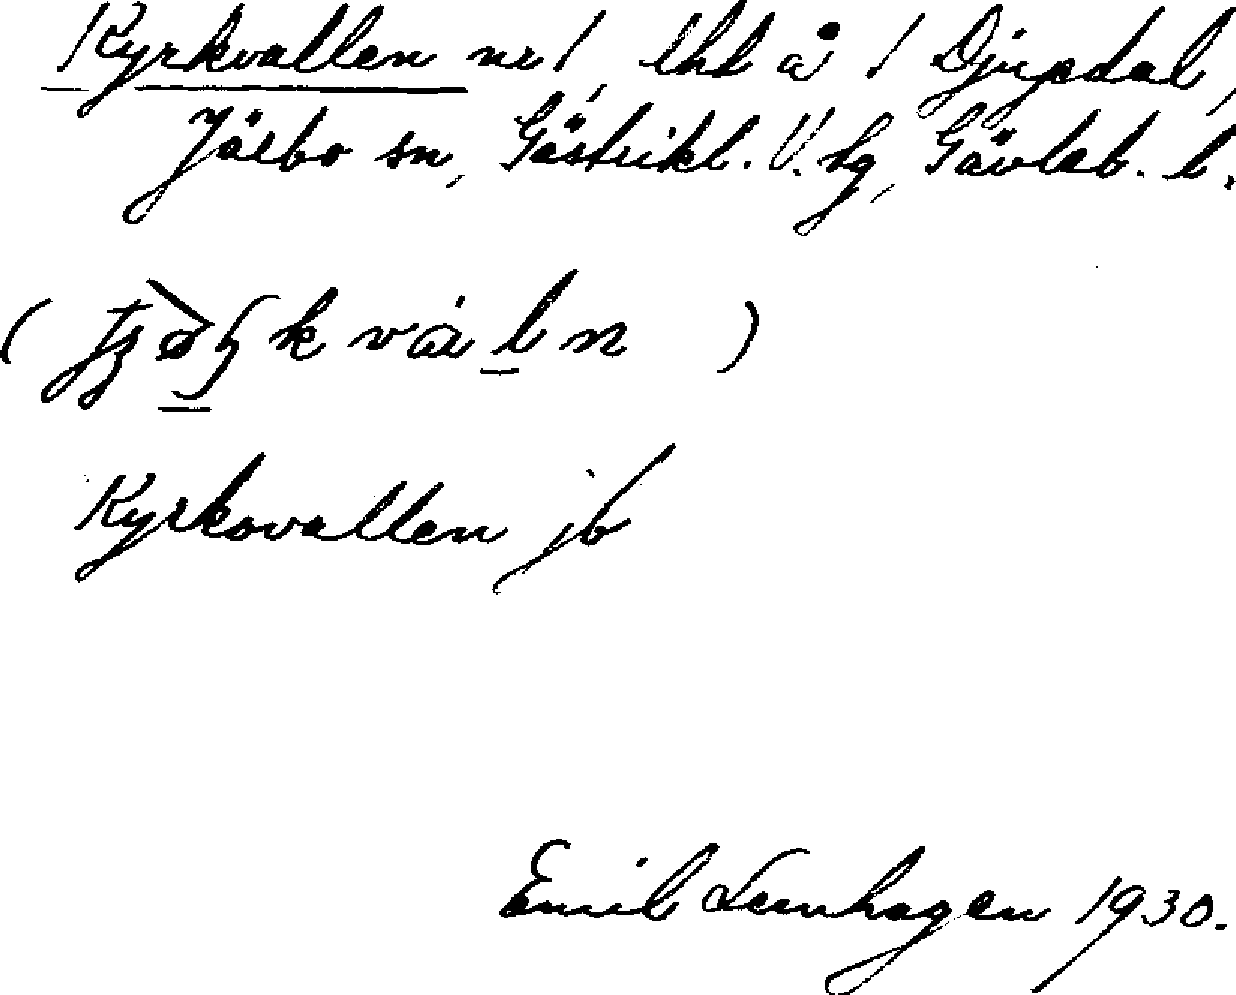 Kyrkvallen nr 1, lht å 1 Djupdal,
Järbo sn, Gästrikl. V. hg, Gävleb. l.
Kyrkovallen jb
Emil Lenhagen 1930.